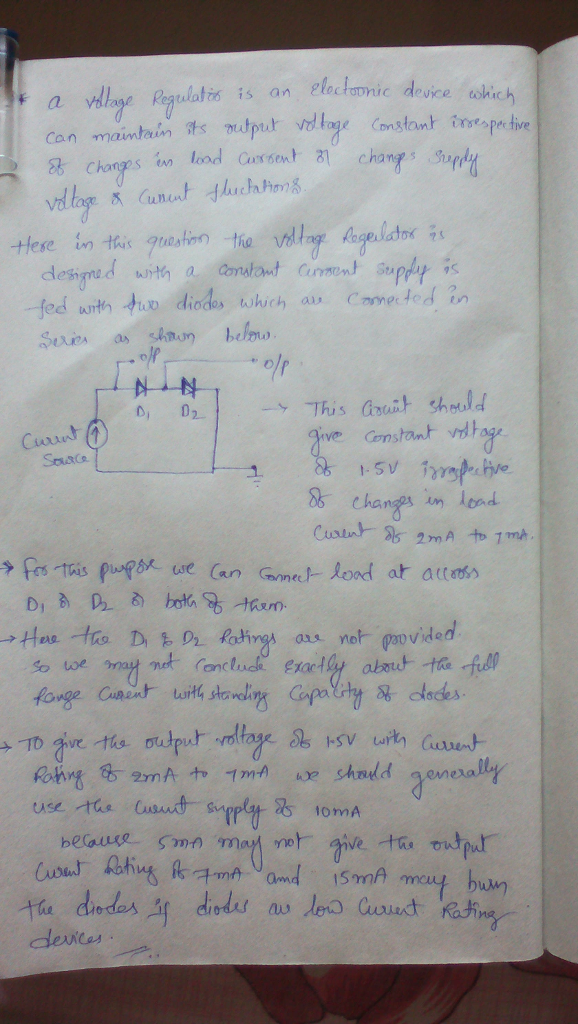 * a voltage Regulator is an electronic device which
can maintain its output voltage constant irrespective
of changes in load current or changes supply
voltage & current fluctations.
Here in this question the voltage Regulator is
designed with a constant current supply is
fed with two diodes which are connected in
series as shown below.
o/p
o/p
D1 D2
Current
Source
→ This circuit should
give constant voltage
of 1.5V irrespective
of changes in load
current of 2mA to 7mA.
→ for this purpose we can connect load at across
D1 or D2 or both of them.
→ Here the D1 & D2 Ratings are not provided.
so we may not conclude exactly about the full
range current with standing capacity of diodes.
→ TO give the output voltage of 1.5V with current
Rating of 2mA to 7mA we should generally
use the current supply of 10mA
because 5mA may not give the output
current Rating of 7mA and 15mA may burn
the diodes if diodes are low current Rating
devices.